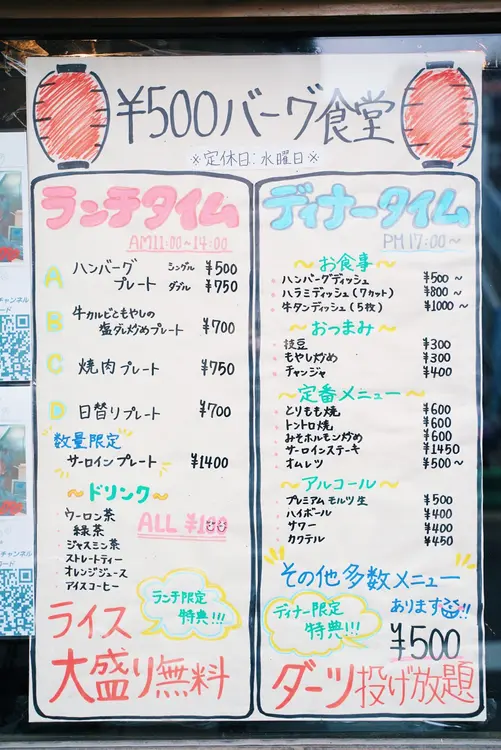 ¥500バーグ食堂
※定休日:水曜日※
ランチタイム
AM11:00～14:00
A ハンバーグプレート シングル ¥500
ダブル ¥750
B 牛カルビともやしの
塩ダレ炒めプレート ¥700
C 焼肉プレート ¥750
D 日替りプレート ¥700
数量限定
サーロインプレート ¥1400
～ドリンク～
ウーロン茶
緑茶
ジャスミン茶
ストレートティー
オレンジジュース
アイスコーヒー
ALL ¥100
ランチ限定
特典!!!
ライス
大盛り無料
ディナータイム
PM 17:00～
～お食事～
ハンバーグディッシュ ¥500～
ハラミディッシュ(7カット) ¥800～
牛タンディッシュ(5枚) ¥1000～
～おつまみ～
枝豆 ¥300
もやし炒め ¥300
チャンジャ ¥400
～定番メニュー～
とりもも焼 ¥600
トントロ焼 ¥600
みそホルモン炒め ¥600
サーロインステーキ ¥1450
オムレツ ¥500～
～アルコール～
プレミアムモルツ生 ¥500
ハイボール ¥400
サワー ¥400
カクテル ¥450
その他多数メニュー
あります!!
ディナー限定
特典!!!
¥500
ダーツ投げ放題
チャンネル
コード
チャンネル
コード